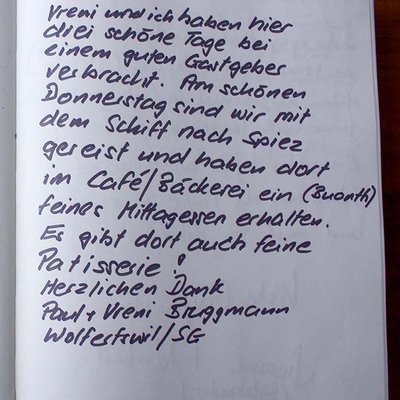 Vreni und ich haben hier
drei schöne Tage bei
einem guten Gastgeber
verbracht. Am schönen
Donnerstag sind wir mit
dem Schiff nach Spiez
gereist und haben dort
im Café/Bäckerei ein
feines Mittagessen erhalten.
Es gibt dort auch feine
Patisserie!
Herzlichen Dank
Paul + Vreni Bruggmann
Wolfertswil/SG